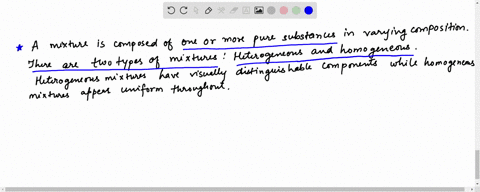 * A mixture is composed of one or more pure substances in varying composition.
There are two types of mixtures : Heterogeneous and homogeneous.
Heterogeneous mixtures have visually distinguishable components while homogeneous
mixtures appers uniform throughout.